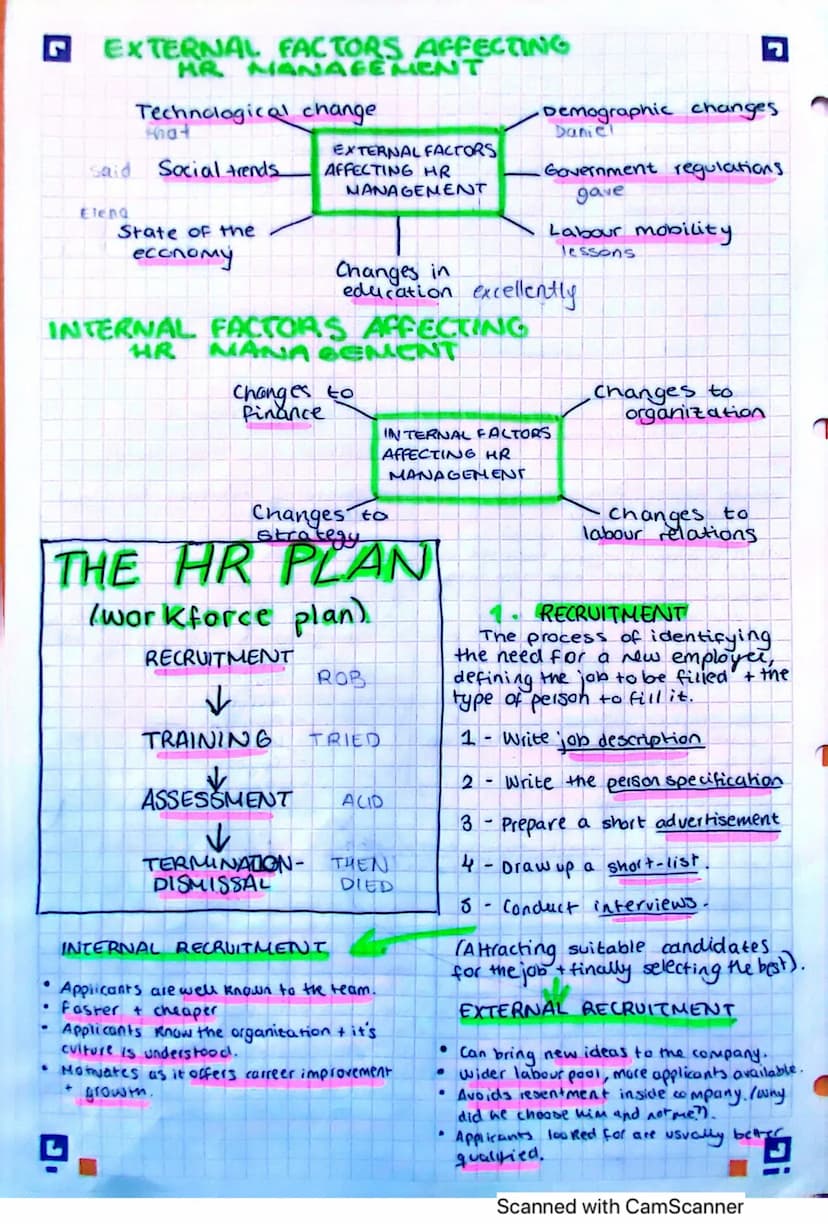 EXTERNAL FACTORS AFFECTING
HR MANAGEMENT
Technological change
that
Demographic changes
Daniel
EXTERNAL FACTORS
AFFECTING HR
MANAGEMENT
said
Social trends
Government regulations
gave
Elena
State of the
economy
Labour mobility
lessons
Changes in
education
excellently
INTERNAL FACTORS AFFECTING
HR MANAGEMENT
Changes to
finance
Changes to
organization
INTERNAL FACTORS
AFFECTING HR
MANAGEMENT
Changes to
strategy
Changes to
labour relations
THE HR PLAN
(workforce plan)
RECRUITMENT
ROB
↓
TRAINING TRIED
↓
ASSESSMENT ACID
↓
TERMINATION- THEN
DISMISSAL DIED
1. RECRUITMENT
The process of identifying
the need for a new employee,
defining the job to be filled + the
type of person to fill it.
1 - Write job description
2 - Write the person specification
3 - Prepare a short advertisement
4 - Draw up a short-list.
5 - Conduct interviews.
(Attracting suitable candidates
for the job + finally selecting the best).
INTERNAL RECRUITMENT
• Applicants are well known to the team.
• Faster + cheaper
• Applicants know the organization + it's
culture is understood.
• Motivates as it offers carreer improvement
+ growth.
EXTERNAL RECRUITMENT
• Can bring new ideas to the company.
• Wider labour pool, more applicants available.
• Avoids resentment inside company. (why
did he choose him and not me?).
• Applicants looked for are usually better
qualified.
Scanned with CamScanner